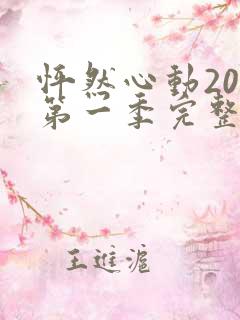 怦然心動20
第一季完整
王進滬